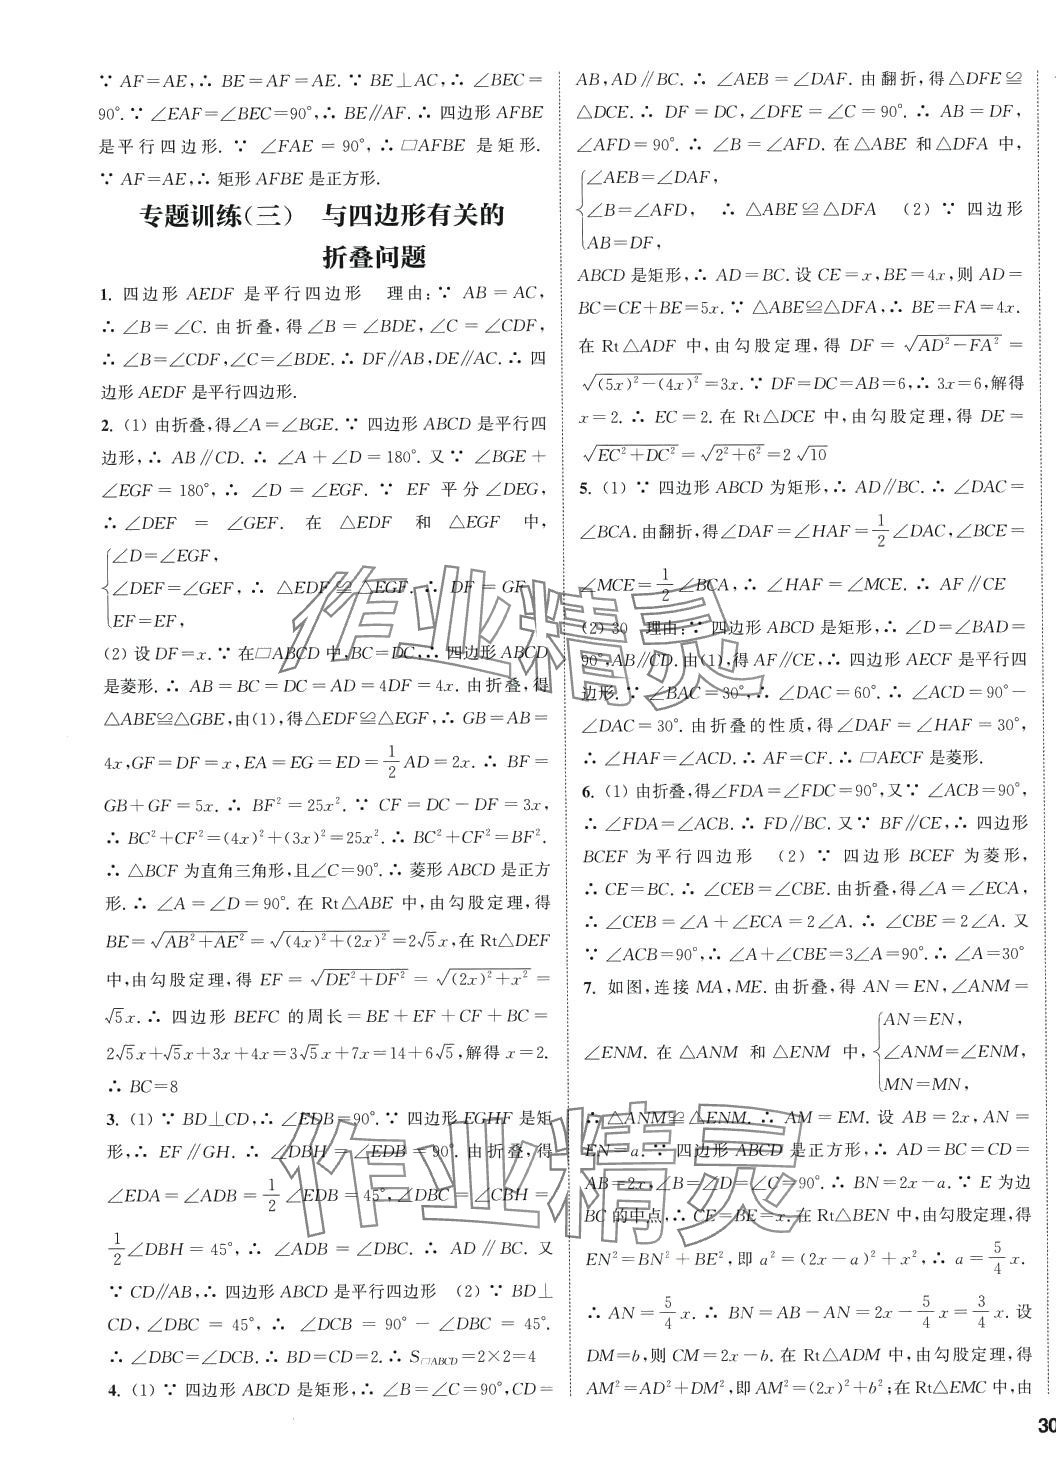 ∵ AF=AE,∴ BE=AF=AE.∵ BE⊥AC,∴ ∠BEC=
90°.∵ ∠EAF=∠BEC=90°,∴ BE∥AF.∴ 四边形 AFBE
是平行四边形.∵ ∠FAE=90°,∴ □AFBE 是矩形.
∵ AF=AE,∴ 矩形 AFBE 是正方形.
专题训练(三) 与四边形有关的
折叠问题
1. 四边形 AEDF 是平行四边形 理由:∵ AB=AC,
∴ ∠B=∠C.由折叠,得∠B=∠BDE,∠C=∠CDF,
∴ ∠B=∠CDF,∠C=∠BDE.∴ DF∥AB,DE∥AC.∴ 四
边形 AEDF 是平行四边形.
2. (1) 由折叠,得∠A=∠BGE.∵ 四边形 ABCD 是平行四
边形,∴ AB∥CD.∴ ∠A+∠D=180°.又∵ ∠BGE+
∠EGF=180°,∴ ∠D=∠EGF.∵ EF 平分∠DEG,
∴ ∠DEF=∠GEF.在△EDF 和△EGF 中,
{∠D=∠EGF,
∠DEF=∠GEF,∴ △EDF≌△EGF.∴ DF=GF
EF=EF,
(2) 设 DF=x.∵ 在□ABCD 中,BC=DC,∴ 四边形 ABCD
是菱形.∴ AB=BC=DC=AD=4DF=4x.由折叠,得
△ABE≌△GBE,由(1),得△EDF≌△EGF,∴ GB=AB=
4x,GF=DF=x,EA=EG=ED=1/2 AD=2x.∴ BF=
GB+GF=5x.∴ BF²=25x².∵ CF=DC-DF=3x,
∴ BC²+CF²=(4x)²+(3x)²=25x².∴ BC²+CF²=BF².
∴ △BCF 为直角三角形,且∠C=90°.∴ 菱形 ABCD 是正方
形.∴ ∠A=∠D=90°.在 Rt△ABE 中,由勾股定理,得
BE=√(AB²+AE²)=√((4x)²+(2x)²)=2√5x,在 Rt△DEF
中,由勾股定理,得 EF=√(DE²+DF²)=√((2x)²+x²)=
√5x.∴ 四边形 BEFC 的周长=BE+EF+CF+BC=
2√5x+√5x+3x+4x=3√5x+7x=14+6√5,解得 x=2.
∴ BC=8
3. (1) ∵ BD⊥CD,∴ ∠EDB=90°.∵ 四边形 EGHF 是矩
形,∴ EF∥GH.∴ ∠DBH=∠EDB=90°.由折叠,得
∠EDA=∠ADB=1/2∠EDB=45°,∠DBC=∠CBH=
1/2∠DBH=45°,∴ ∠ADB=∠DBC.∴ AD∥BC.又
∵ CD∥AB,∴ 四边形 ABCD 是平行四边形 (2) ∵ BD⊥
CD,∠DBC=45°,∴ ∠DCB=90°-∠DBC=45°.
∴ ∠DBC=∠DCB.∴ BD=CD=2.∴ S□ABCD=2×2=4
4. (1) ∵ 四边形 ABCD 是矩形,∴ ∠B=∠C=90°,CD=
AB,AD∥BC.∴ ∠AEB=∠DAF.由翻折,得△DFE≌
△DCE.∴ DF=DC,∠DFE=∠C=90°.∴ AB=DF,
∠AFD=90°.∴ ∠B=∠AFD.在△ABE 和△DFA 中,
{∠AEB=∠DAF,
∠B=∠AFD,∴ △ABE≌△DFA (2) ∵ 四边形
AB=DF,
ABCD 是矩形,∴ AD=BC.设 CE=x,BE=4x,则 AD=
BC=CE+BE=5x.∵ △ABE≌△DFA,∴ BE=FA=4x.
在 Rt△ADF 中,由勾股定理,得 DF=√(AD²-FA²)=
√((5x)²-(4x)²)=3x.∵ DF=DC=AB=6,∴ 3x=6,解得
x=2.∴ EC=2.在 Rt△DCE 中,由勾股定理,得 DE=
√(EC²+DC²)=√(2²+6²)=2√10
5. (1) ∵ 四边形 ABCD 为矩形,∴ AD∥BC.∴ ∠DAC=
∠BCA.由翻折,得∠DAF=∠HAF=1/2∠DAC,∠BCE=
∠MCE=1/2∠BCA,∴ ∠HAF=∠MCE.∴ AF∥CE
(2) 30 理由:∵ 四边形 ABCD 是矩形,∴ ∠D=∠BAD=
90°,AB∥CD.由(1),得 AF∥CE,∴ 四边形 AECF 是平行四
边形.∵ ∠BAC=30°,∴ ∠DAC=60°.∴ ∠ACD=90°-
∠DAC=30°.由折叠的性质,得∠DAF=∠HAF=30°,
∴ ∠HAF=∠ACD.∴ AF=CF.∴ □AECF 是菱形.
6. (1) 由折叠,得∠FDA=∠FDC=90°,又∵ ∠ACB=90°,
∴ ∠FDA=∠ACB.∴ FD∥BC.又∵ BF∥CE,∴ 四边形
BCEF 为平行四边形 (2) ∵ 四边形 BCEF 为菱形,
∴ CE=BC.∴ ∠CEB=∠CBE.由折叠,得∠A=∠ECA,
∴ ∠CEB=∠A+∠ECA=2∠A.∴ ∠CBE=2∠A.又
∵ ∠ACB=90°,∴ ∠A+∠CBE=3∠A=90°.∴ ∠A=30°
7. 如图,连接 MA,ME.由折叠,得 AN=EN,∠ANM=
∠ENM.在△ANM 和△ENM 中,{AN=EN,
∠ANM=∠ENM,
MN=MN,
∴ △ANM≌△ENM.∴ AM=EM.设 AB=2x,AN=
EN=a.∵ 四边形 ABCD 是正方形,∴ AD=BC=CD=
AB=2x,∠B=∠D=∠C=90°.∴ BN=2x-a.∵ E 为边
BC 的中点,∴ CE=BE=x.在 Rt△BEN 中,由勾股定理,得
EN²=BN²+BE²,即 a²=(2x-a)²+x²,∴ a=5/4 x.
∴ AN=5/4 x.∴ BN=AB-AN=2x-5/4 x=3/4 x.设
DM=b,则 CM=2x-b.在 Rt△ADM 中,由勾股定理,得
AM²=AD²+DM²,即AM²=(2x)²+b²;在 Rt△EMC 中,由
30
作业精灵
作业精灵